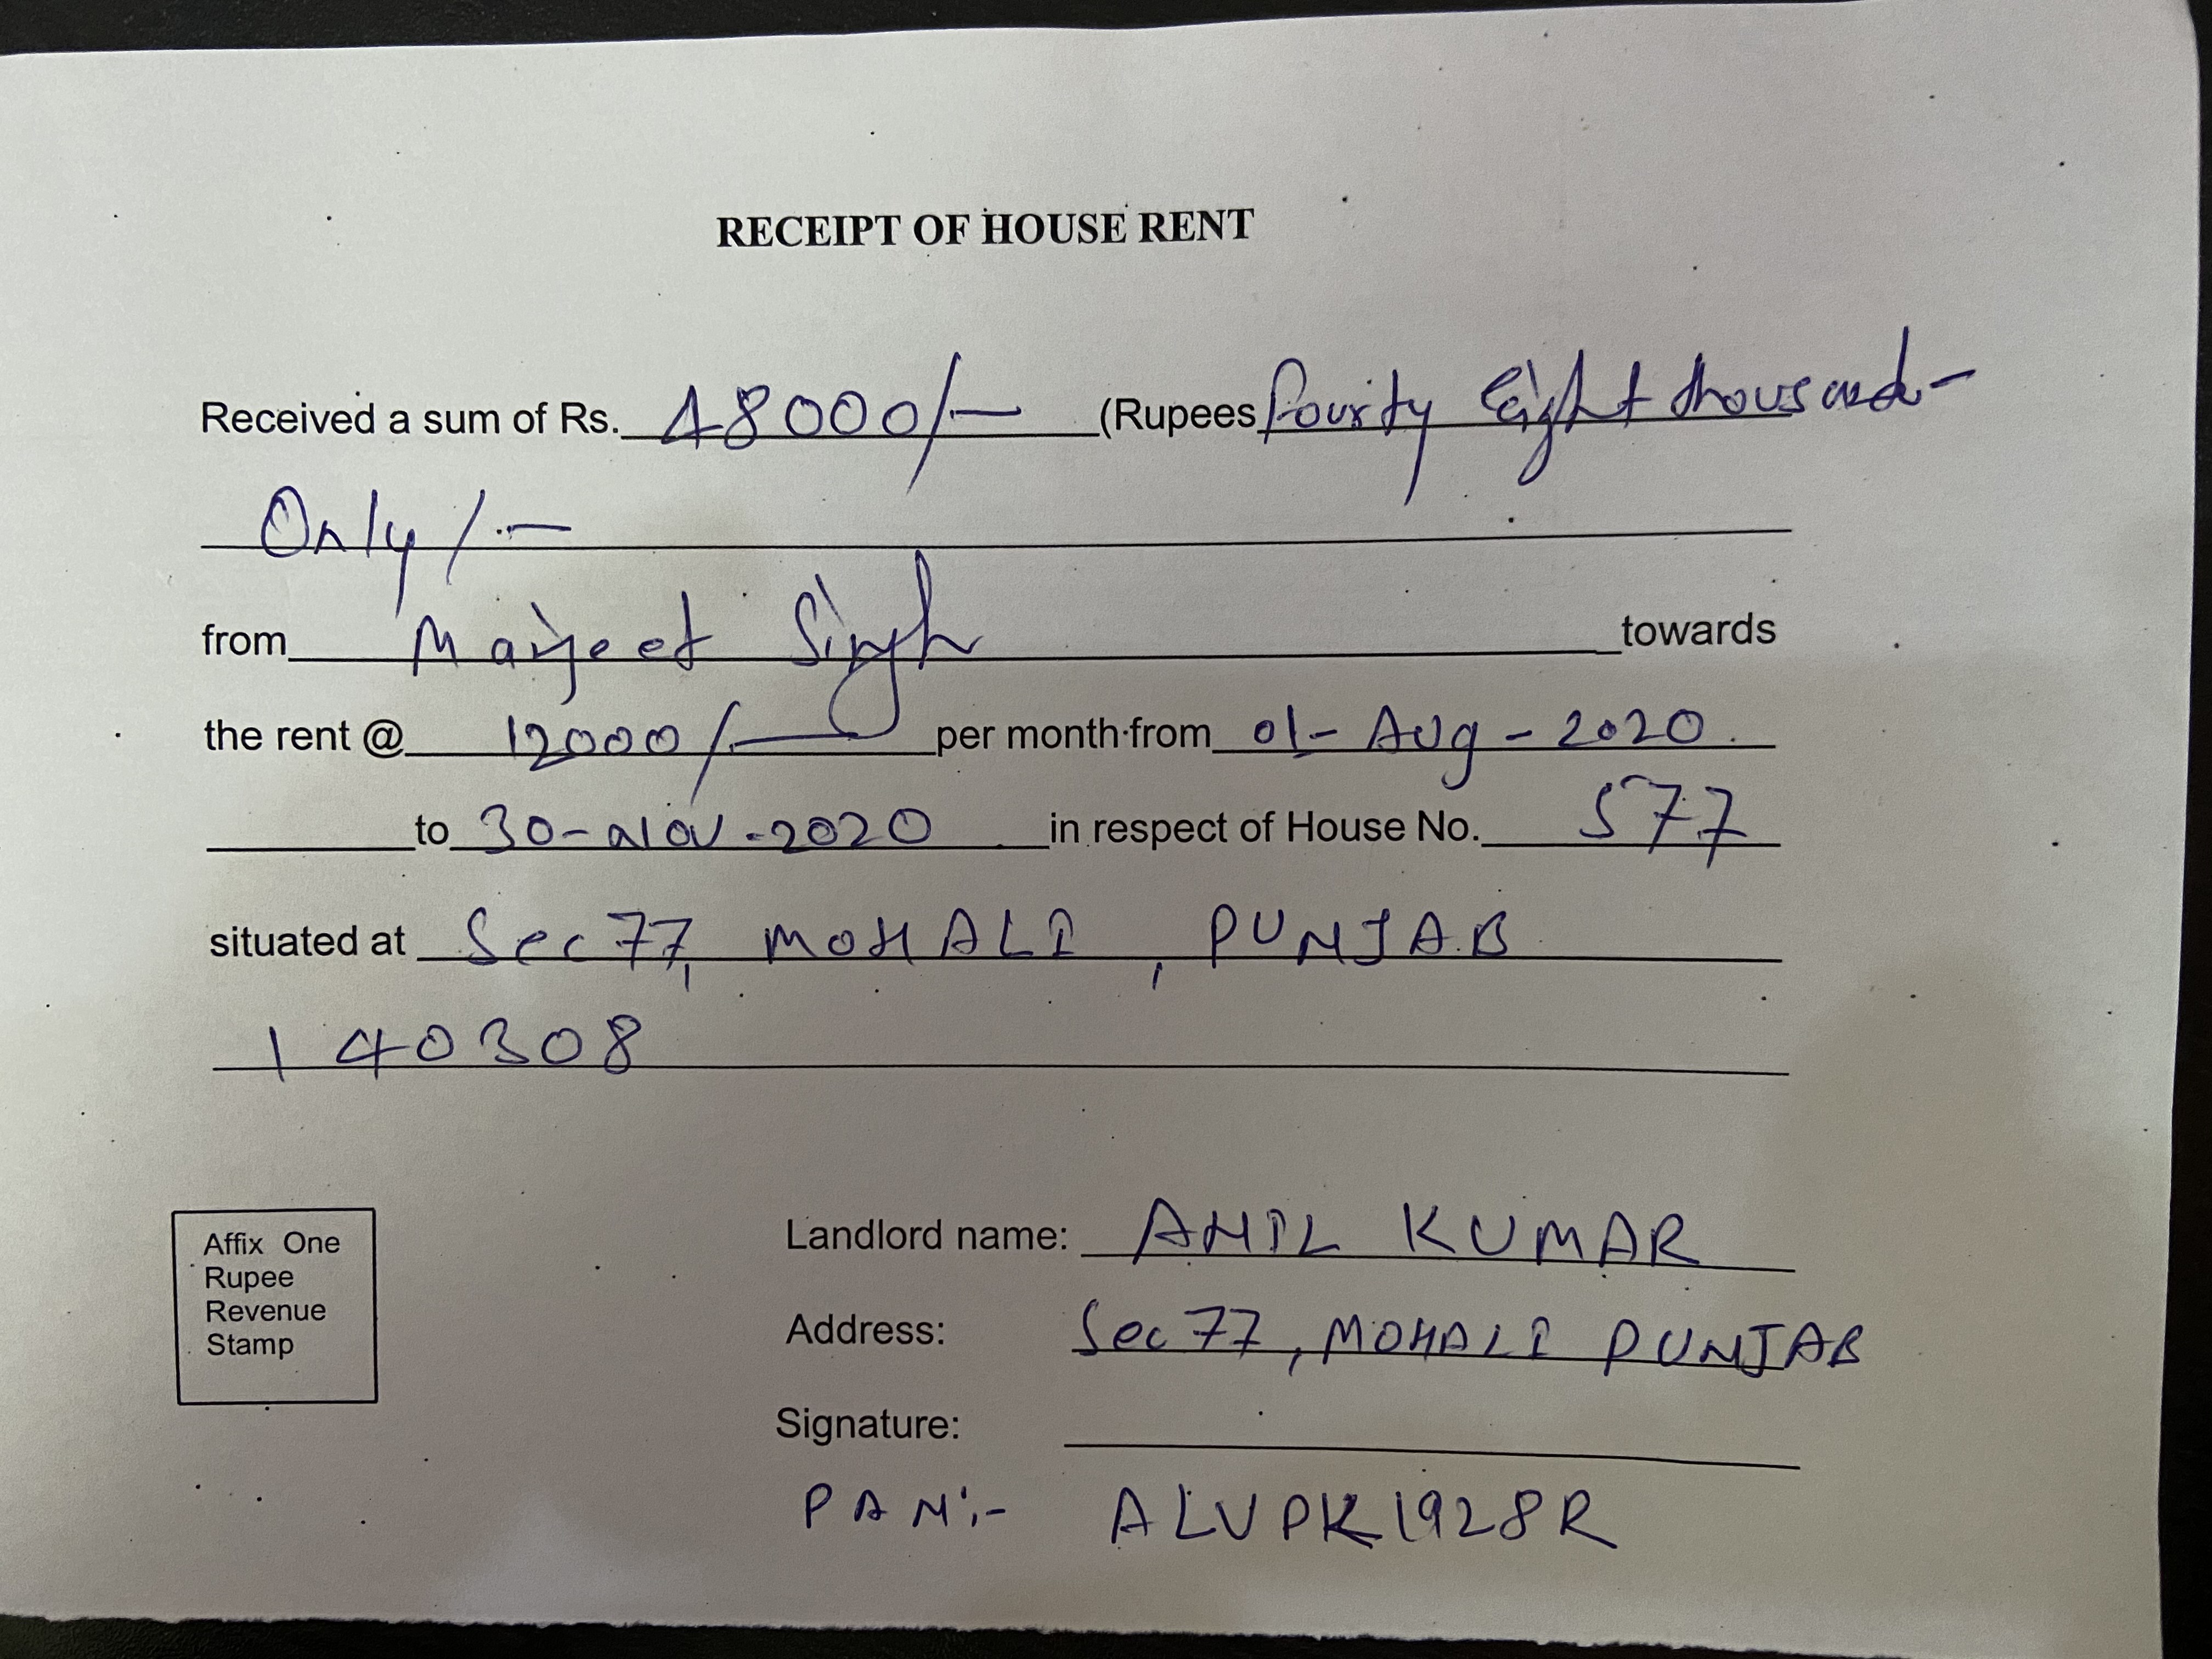 RECEIPT OF HOUSE RENT
Received a sum of Rs. 48000/- (Rupees Fourty Eight thousand.-
Only/.-
from Manjeet Singh towards
the rent @ 12000/- per month from 01-Aug-2020
to 30-Nov-2020 in respect of House No. 577
situated at Sec 77, MOHALI, PUNJAB
140308
Affix One
Rupee
Revenue
Stamp
Landlord name: ANIL KUMAR
Address: Sec 77, MOHALI PUNJAB
Signature:
PAN:- ALVPK1928R